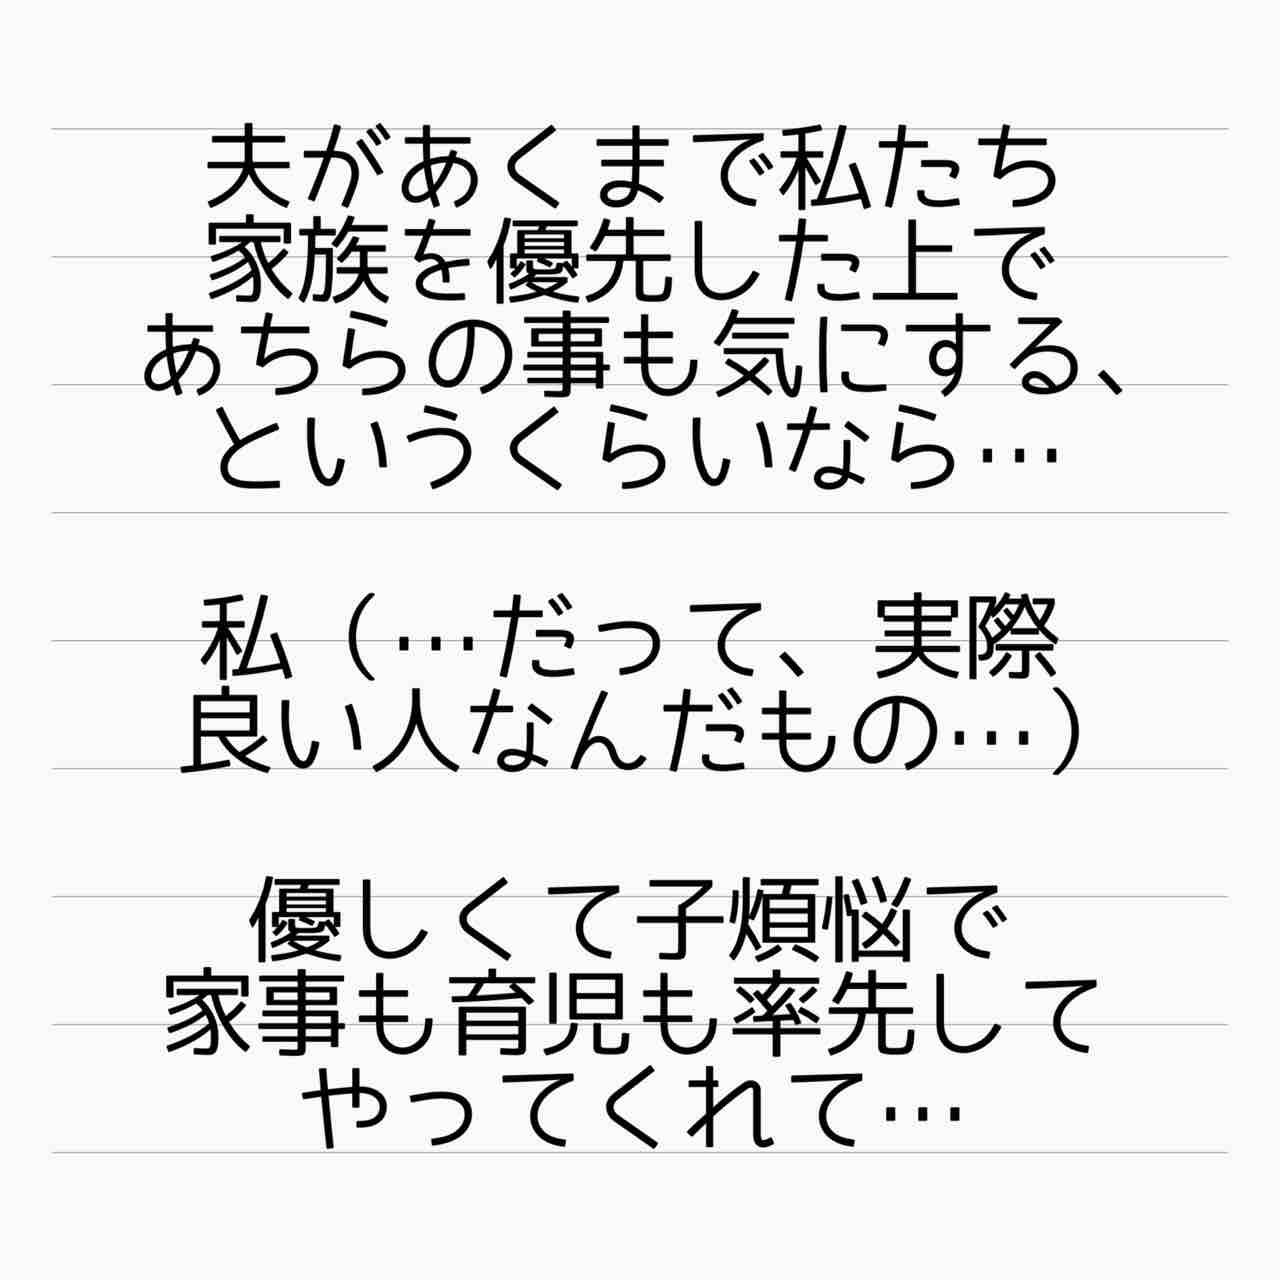 夫があくまで私たち
家族を優先した上で
あちらの事も気にする、
というくらいなら…
私（…だって、実際
良い人なんだもの…）
優しくて子煩悩で
家事も育児も率先して
やってくれて…